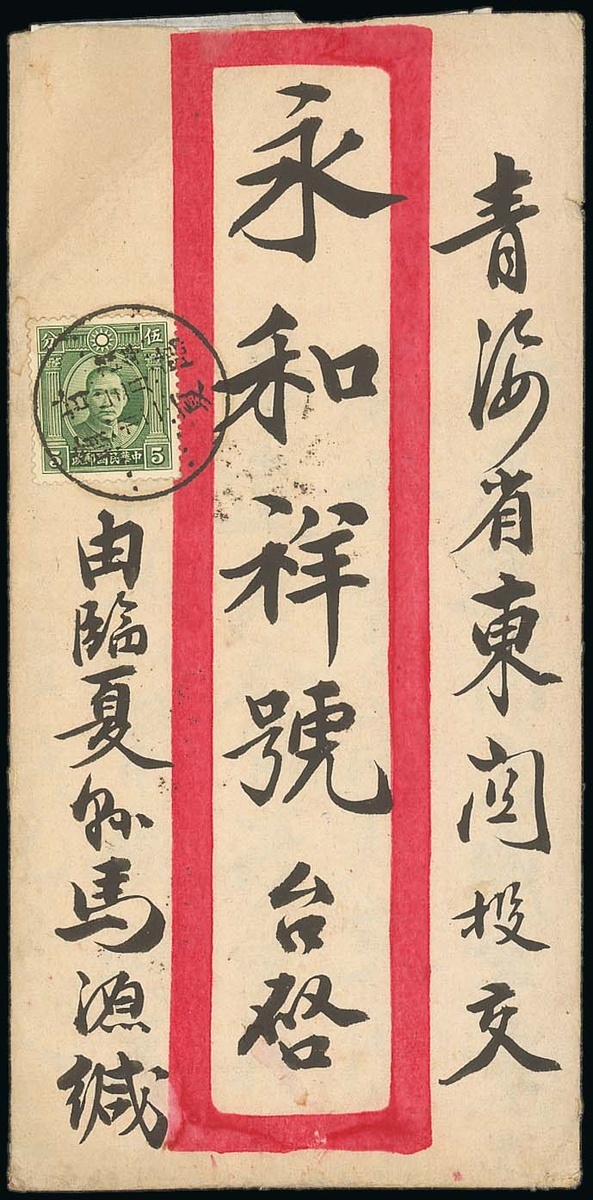 青海省東関投交
永和祥號台啓
由臨夏縣馬源緘
分 伍
5 政郵國民華中 5